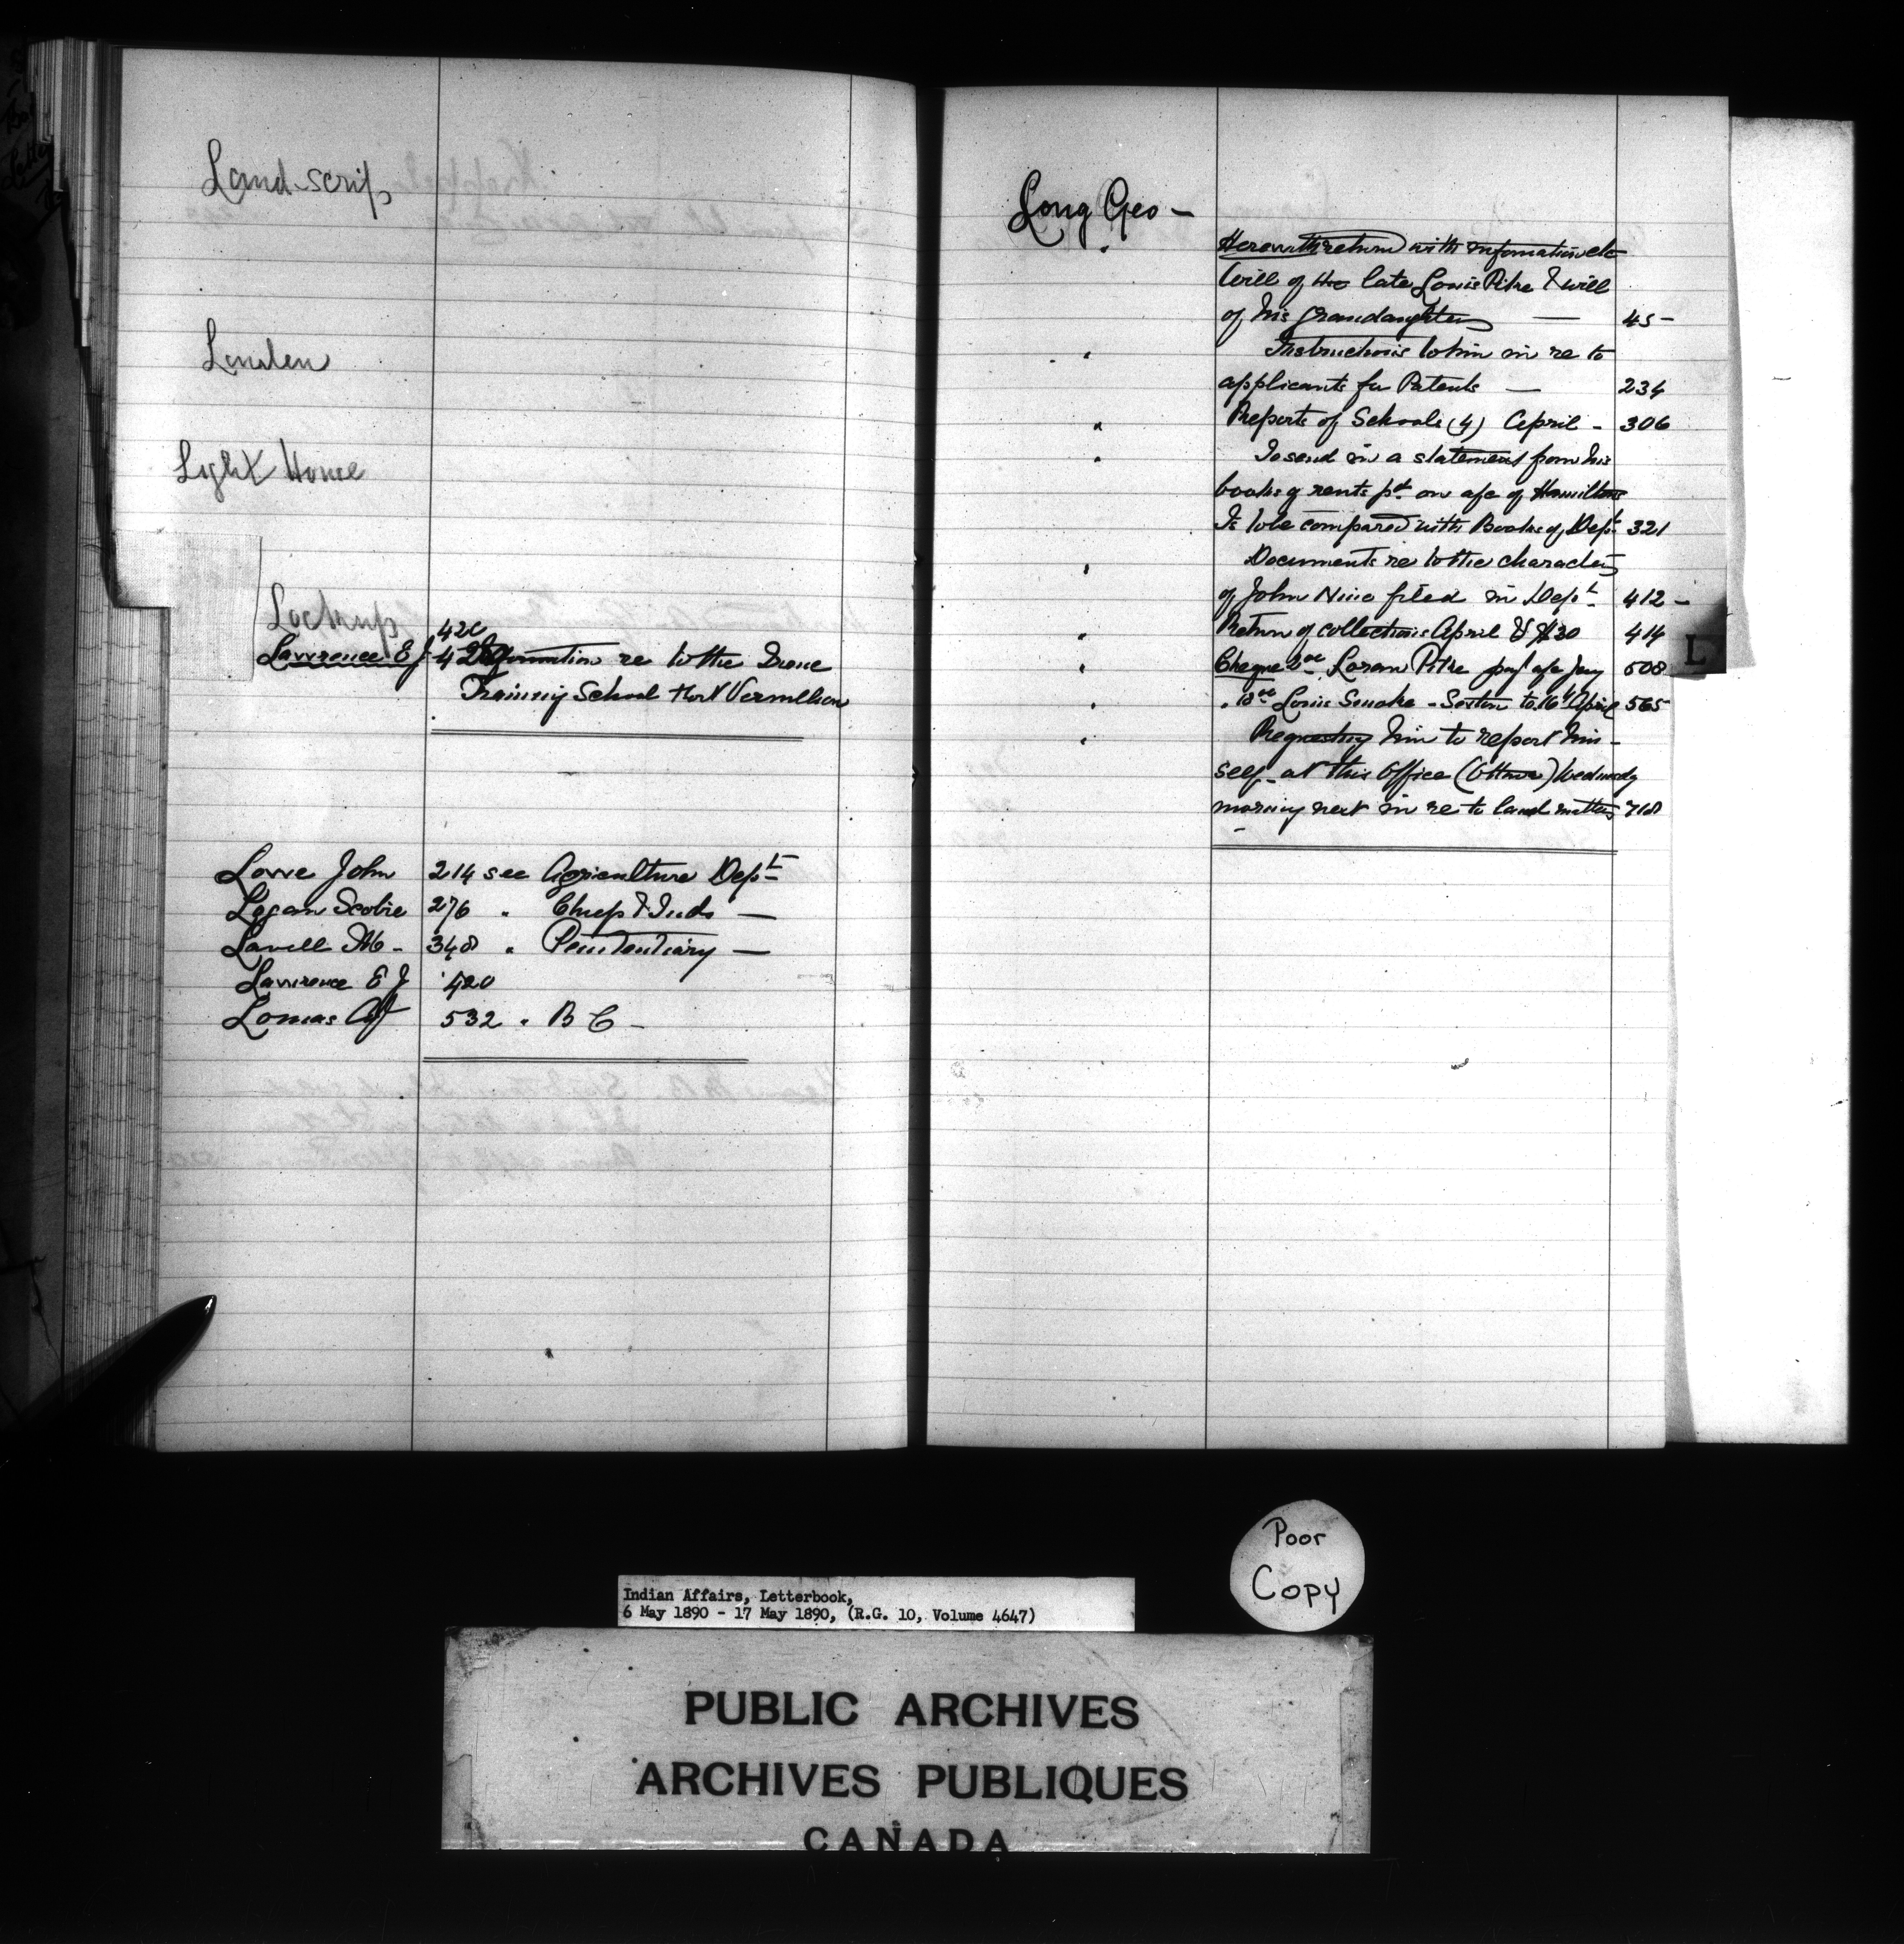 Land-scrip
London
Light House
Lockup
420
Lawrence E J Information re to the Irene
Training School Fort Vermilion
Lowe John 214 see Agriculture Dept
Logan Scobie 276 " Chief & Inds —
Lavell M - 348 " Penitentiary —
Lawrence E J 420
Lomas A J 532 " B C -
Long Geo -
" Herewith return with information etc
Will of the late Louis Pike & will
of his Grandaughter — 45 -
" Instructions to him in re to
applicants for Patents — 234
" Reports of Schools (4) April - 306
" To send in a statement from his
books of rents pd on a/c of Hamiltons
Is to be compared with Books of Dept 321
" Documents re to the character
of John Nine filed in Dept 412 -
" Return of collections April $30 414
" Cheque Loran Pike pay a/c 508
" Louis Smoke - Sexton to 16th April 565
" Requesting him to report him-
self at this Office (Ottawa) Wednesdy
morning next in re to land matters 718
L
Poor
Copy
Indian Affairs, Letterbook,
6 May 1890 - 17 May 1890, (R.G. 10, Volume 4647)
PUBLIC ARCHIVES
ARCHIVES PUBLIQUES
CANADA